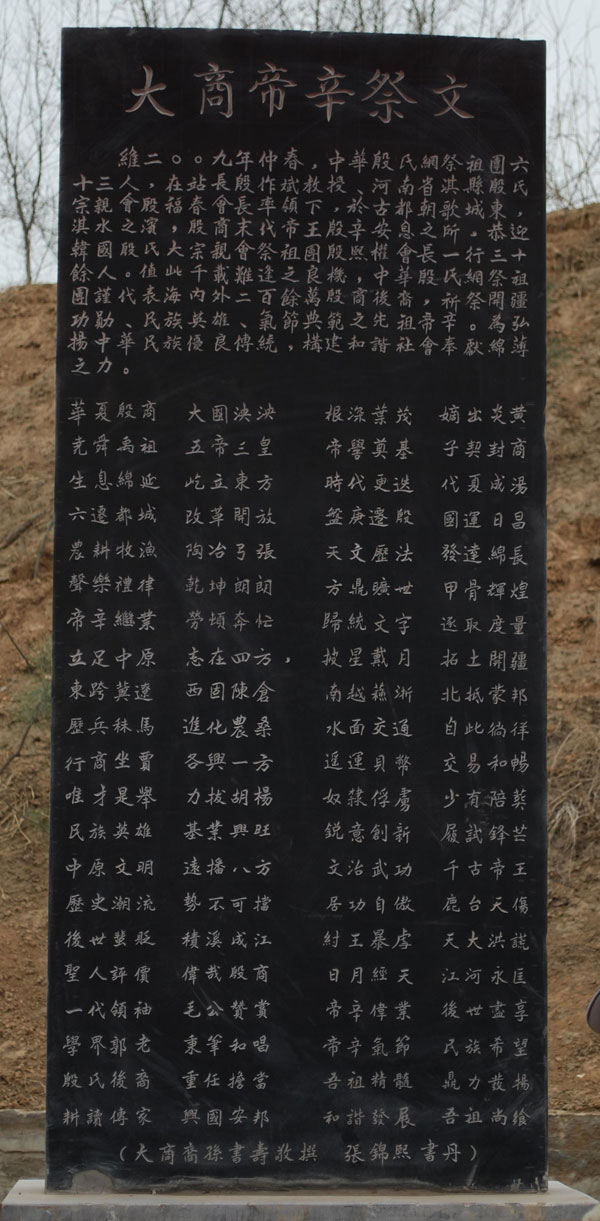 大商帝辛祭文
維二。。九年仲春，中華殷民網祭祖團六
十三人，在站長殷作斌教授、河南省淇縣殷氏
宗親會殷福春會長率領下，於古都朝歌城東，
淇水之濱，殷商末代帝王殷辛安息之所，恭迎
韓國殷氏大宗親會祭祖團殷熙權會長一行三十
餘人。值此千載難逢之良機，中華殷民網祭祖
團謹代表海內外二百餘萬殷商後裔，祈祭開疆
功勛、民族英雄、氣節典範之先祖帝辛。為弘
揚中華民族優良傳統，構建和諧社會奉獻綿薄
之力。
華夏殷商 大國泱泱 根深葉茂 嫡出炎黃
堯舜禹祖 五帝三皇 帝嚳奠基 子契封商
生息綿延 屹立東方 時代更迭 代夏成湯
六遷都城 改革開放 盤庚遷殷 國運日昌
農耕牧漁 陶冶弓張 天文歷法 發達綿長
聲樂禮律 乾坤朗朗 方鼎曠世 甲骨輝煌
帝辛繼業 勞頓奔忙 歸統文字 逐取度量
立足中原 志在四方， 披星戴月 拓土開疆
東跨冀遼 西固陳倉 南越蘇浙 北抵蒙邦
歷兵秣馬 進化農桑 水面交通 自此徜徉
行商坐賈 各興一方 運貝幣 交易和暢
唯才是舉 力拔胡楊 奴隸俘虜 少有陪葬
民族英雄 基業興旺 銳意創新 履試鋒芒
中原文明 遠播八方 文治武功 千古帝王
歷史潮流 勢不可擋 居功自傲 鹿台天傷
後世蜚貶 積溪成江 紂王暴虐 天大洪謊
聖人評價 偉哉殷商 日月經天 江河永匡
一代領袖 毛公贊賞 帝辛偉業 後世盡享
學界郭老 秉筆和唱 帝辛氣節 民族希望
殷氏後裔 重任擔當 吾祖精髓 鼎力發揚
耕讀傳家 興國安邦 和諧發展 吾祖尚饗
(大商裔孫書壽敬撰 張錦熙書丹)